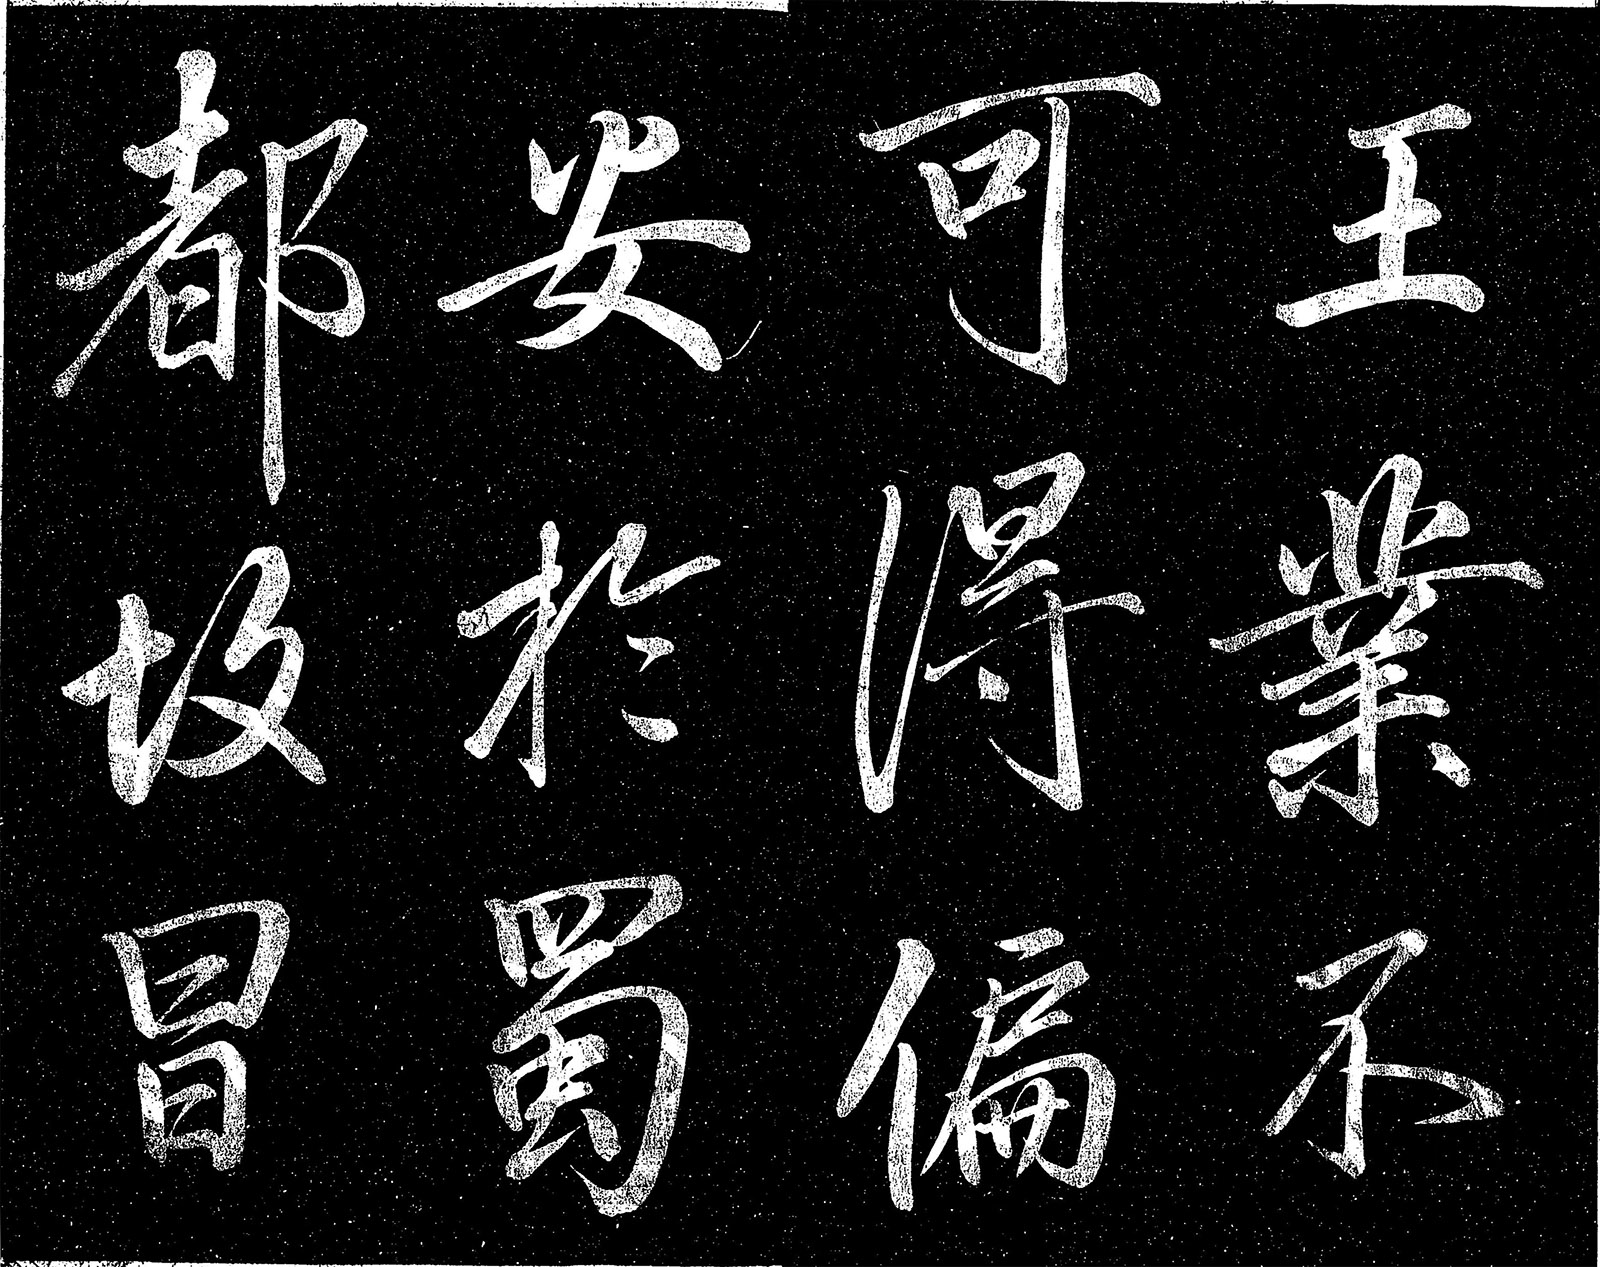 王業不
可得偏
安於蜀
都故冒